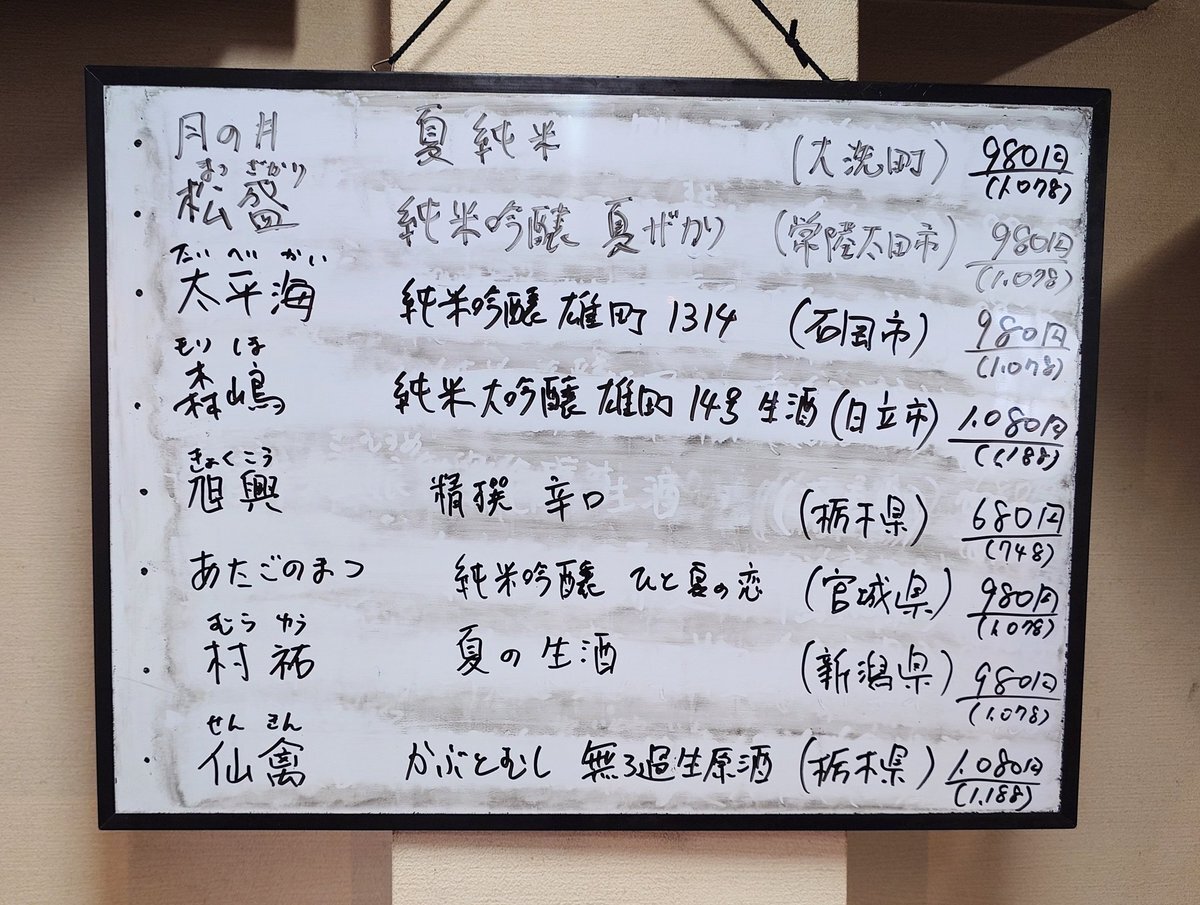 ・月の井 夏純米 (大洗町) 980円
(1.078)
まつざかり
・松盛 純米吟醸 夏ざかり (常陸太田市) 980円
(1.078)
たいへいかい
・太平海 純米吟醸 雄町 1314 (石岡市) 980円
(1.078)
もりしま
・森嶋 純米大吟醸 雄町 14号 生酒 (日立市) 1.080円
(1.188)
きょくこう
・旭興 精撰 辛口 (栃木県) 680円
(748)
・あたごのまつ 純米吟醸 ひと夏の恋 (宮城県) 980円
(1.078)
むらゆう
・村祐 夏の生酒 (新潟県) 980円
(1.078)
せんきん
・仙禽 かぶとむし 無ろ過生原酒 (栃木県) 1.080円
(1.188)